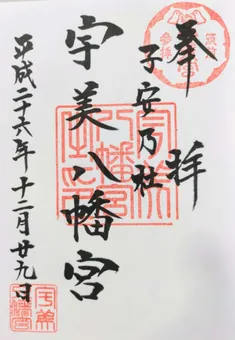 奉拝
子安乃杜
宇美八幡宮
平成二十六年十二月廿九日
宇美
八幡宮